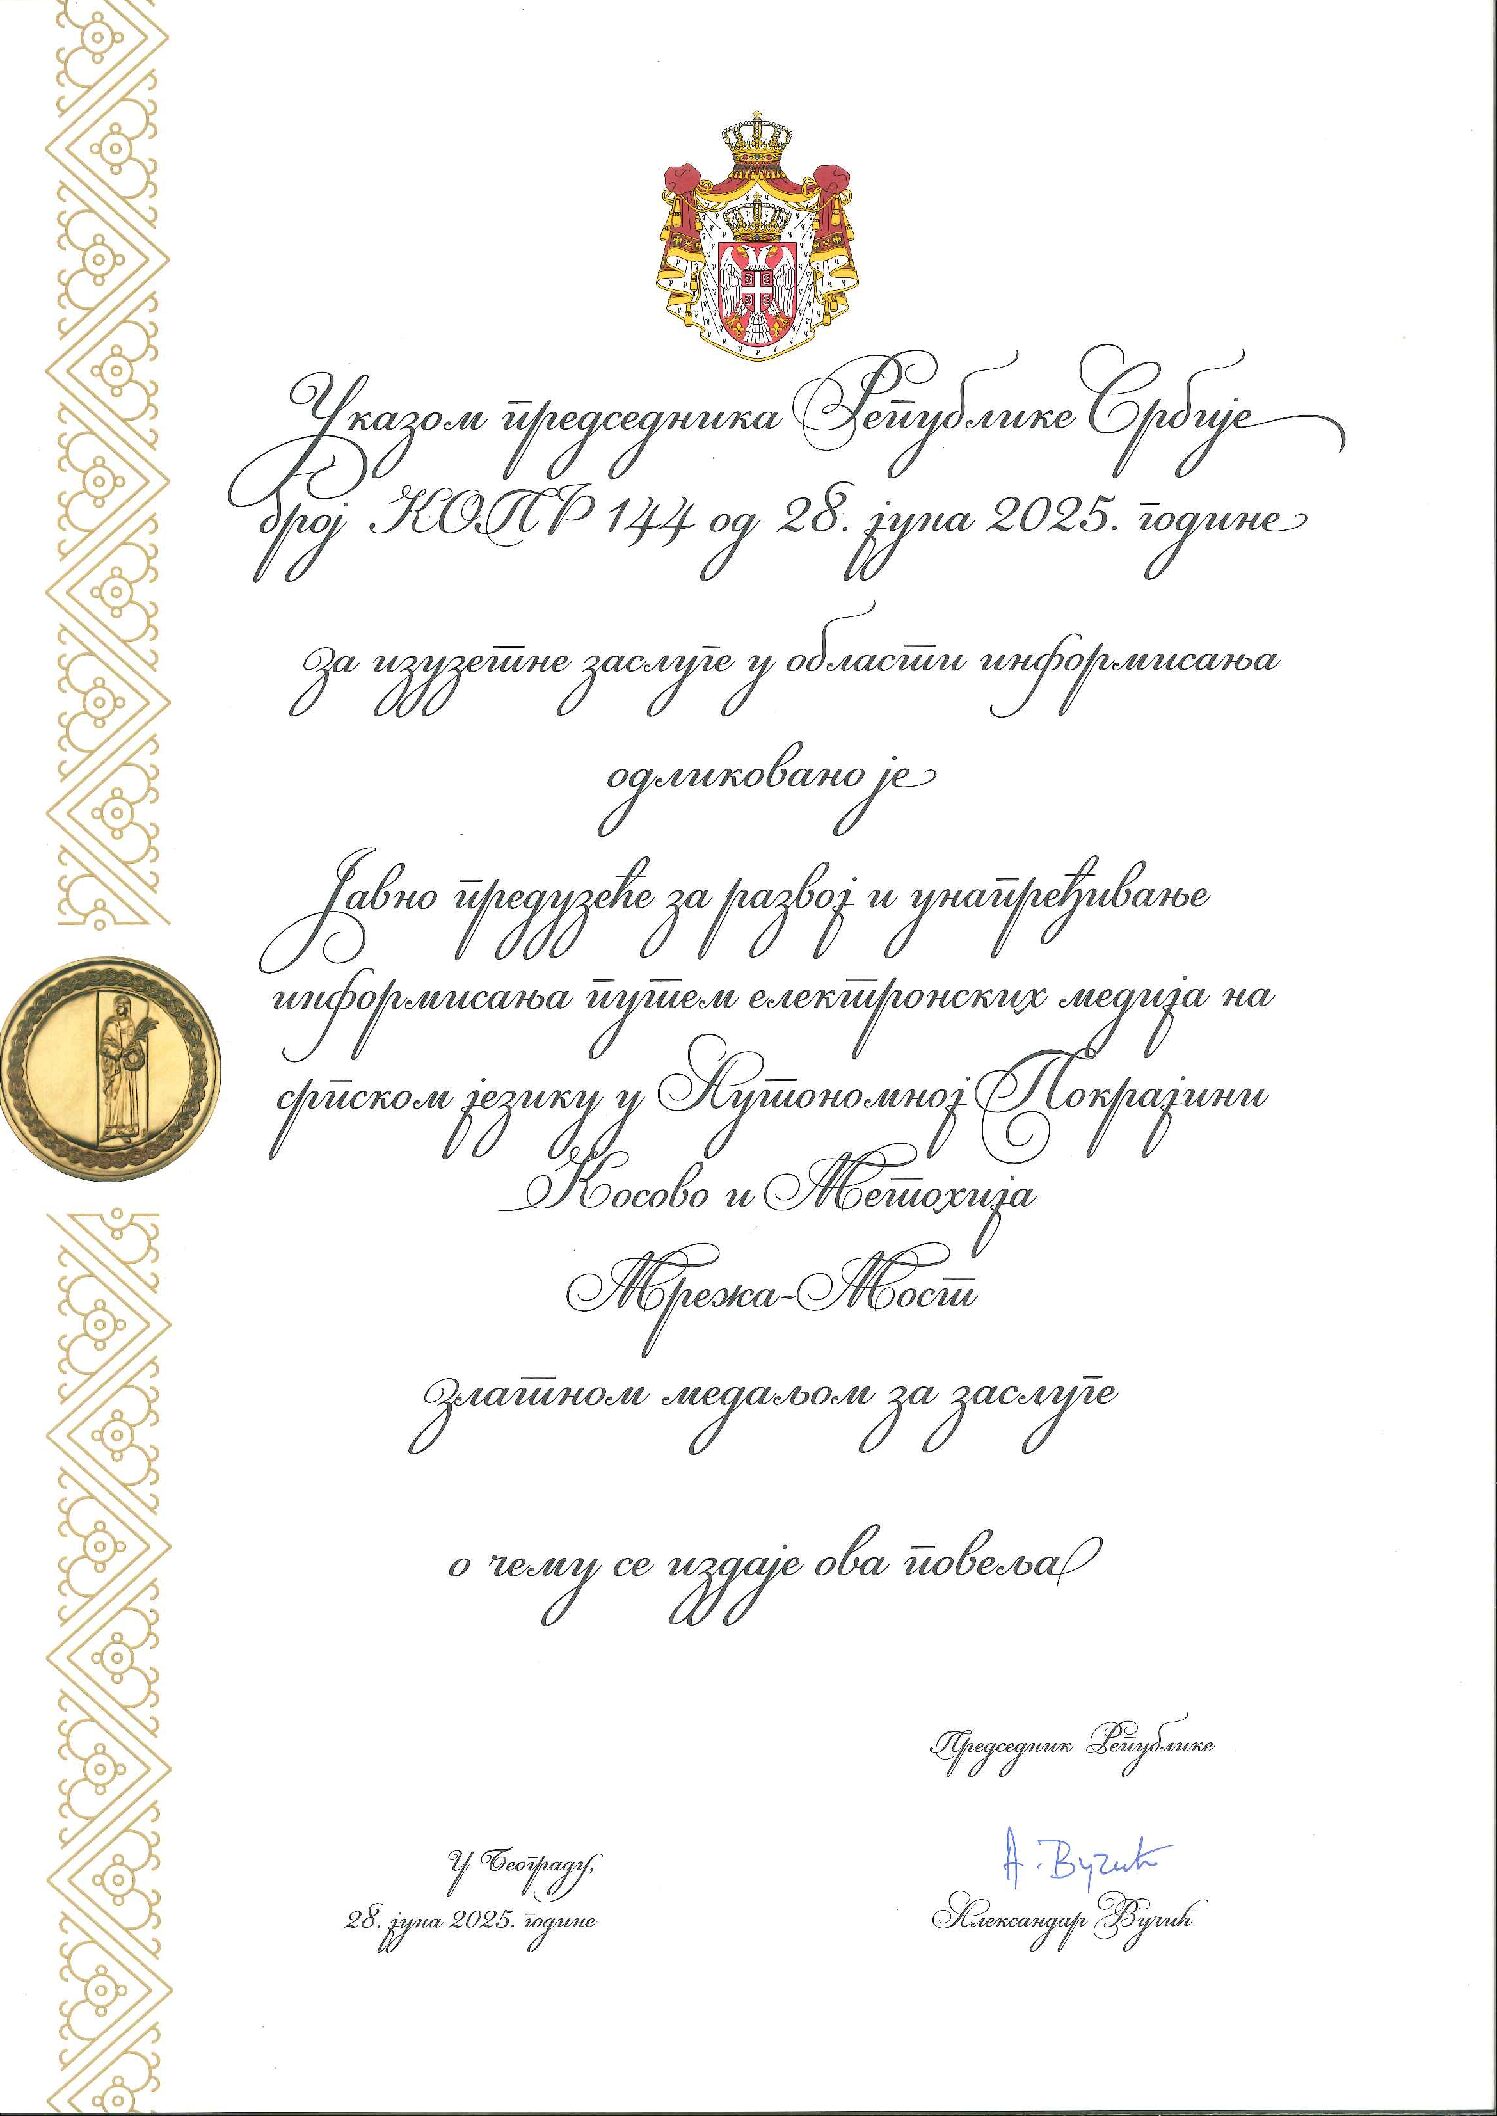 Указом председника Републике Србије
број КОПР 144 од 28. јуна 2025. године
за изузетне заслуге у области информисања
одликовано је
Јавно предузеће за развој и унапређивање
информисања путем електронских медија на
српском језику у Аутономној Покрајини
Косово и Метохија
Мрежа-Мост
златном медаљом за заслуге
о чему се издаје ова повеља
Председник Републике
А. Вучић
У Београду,
28. јуна 2025. године
Александар Вучић